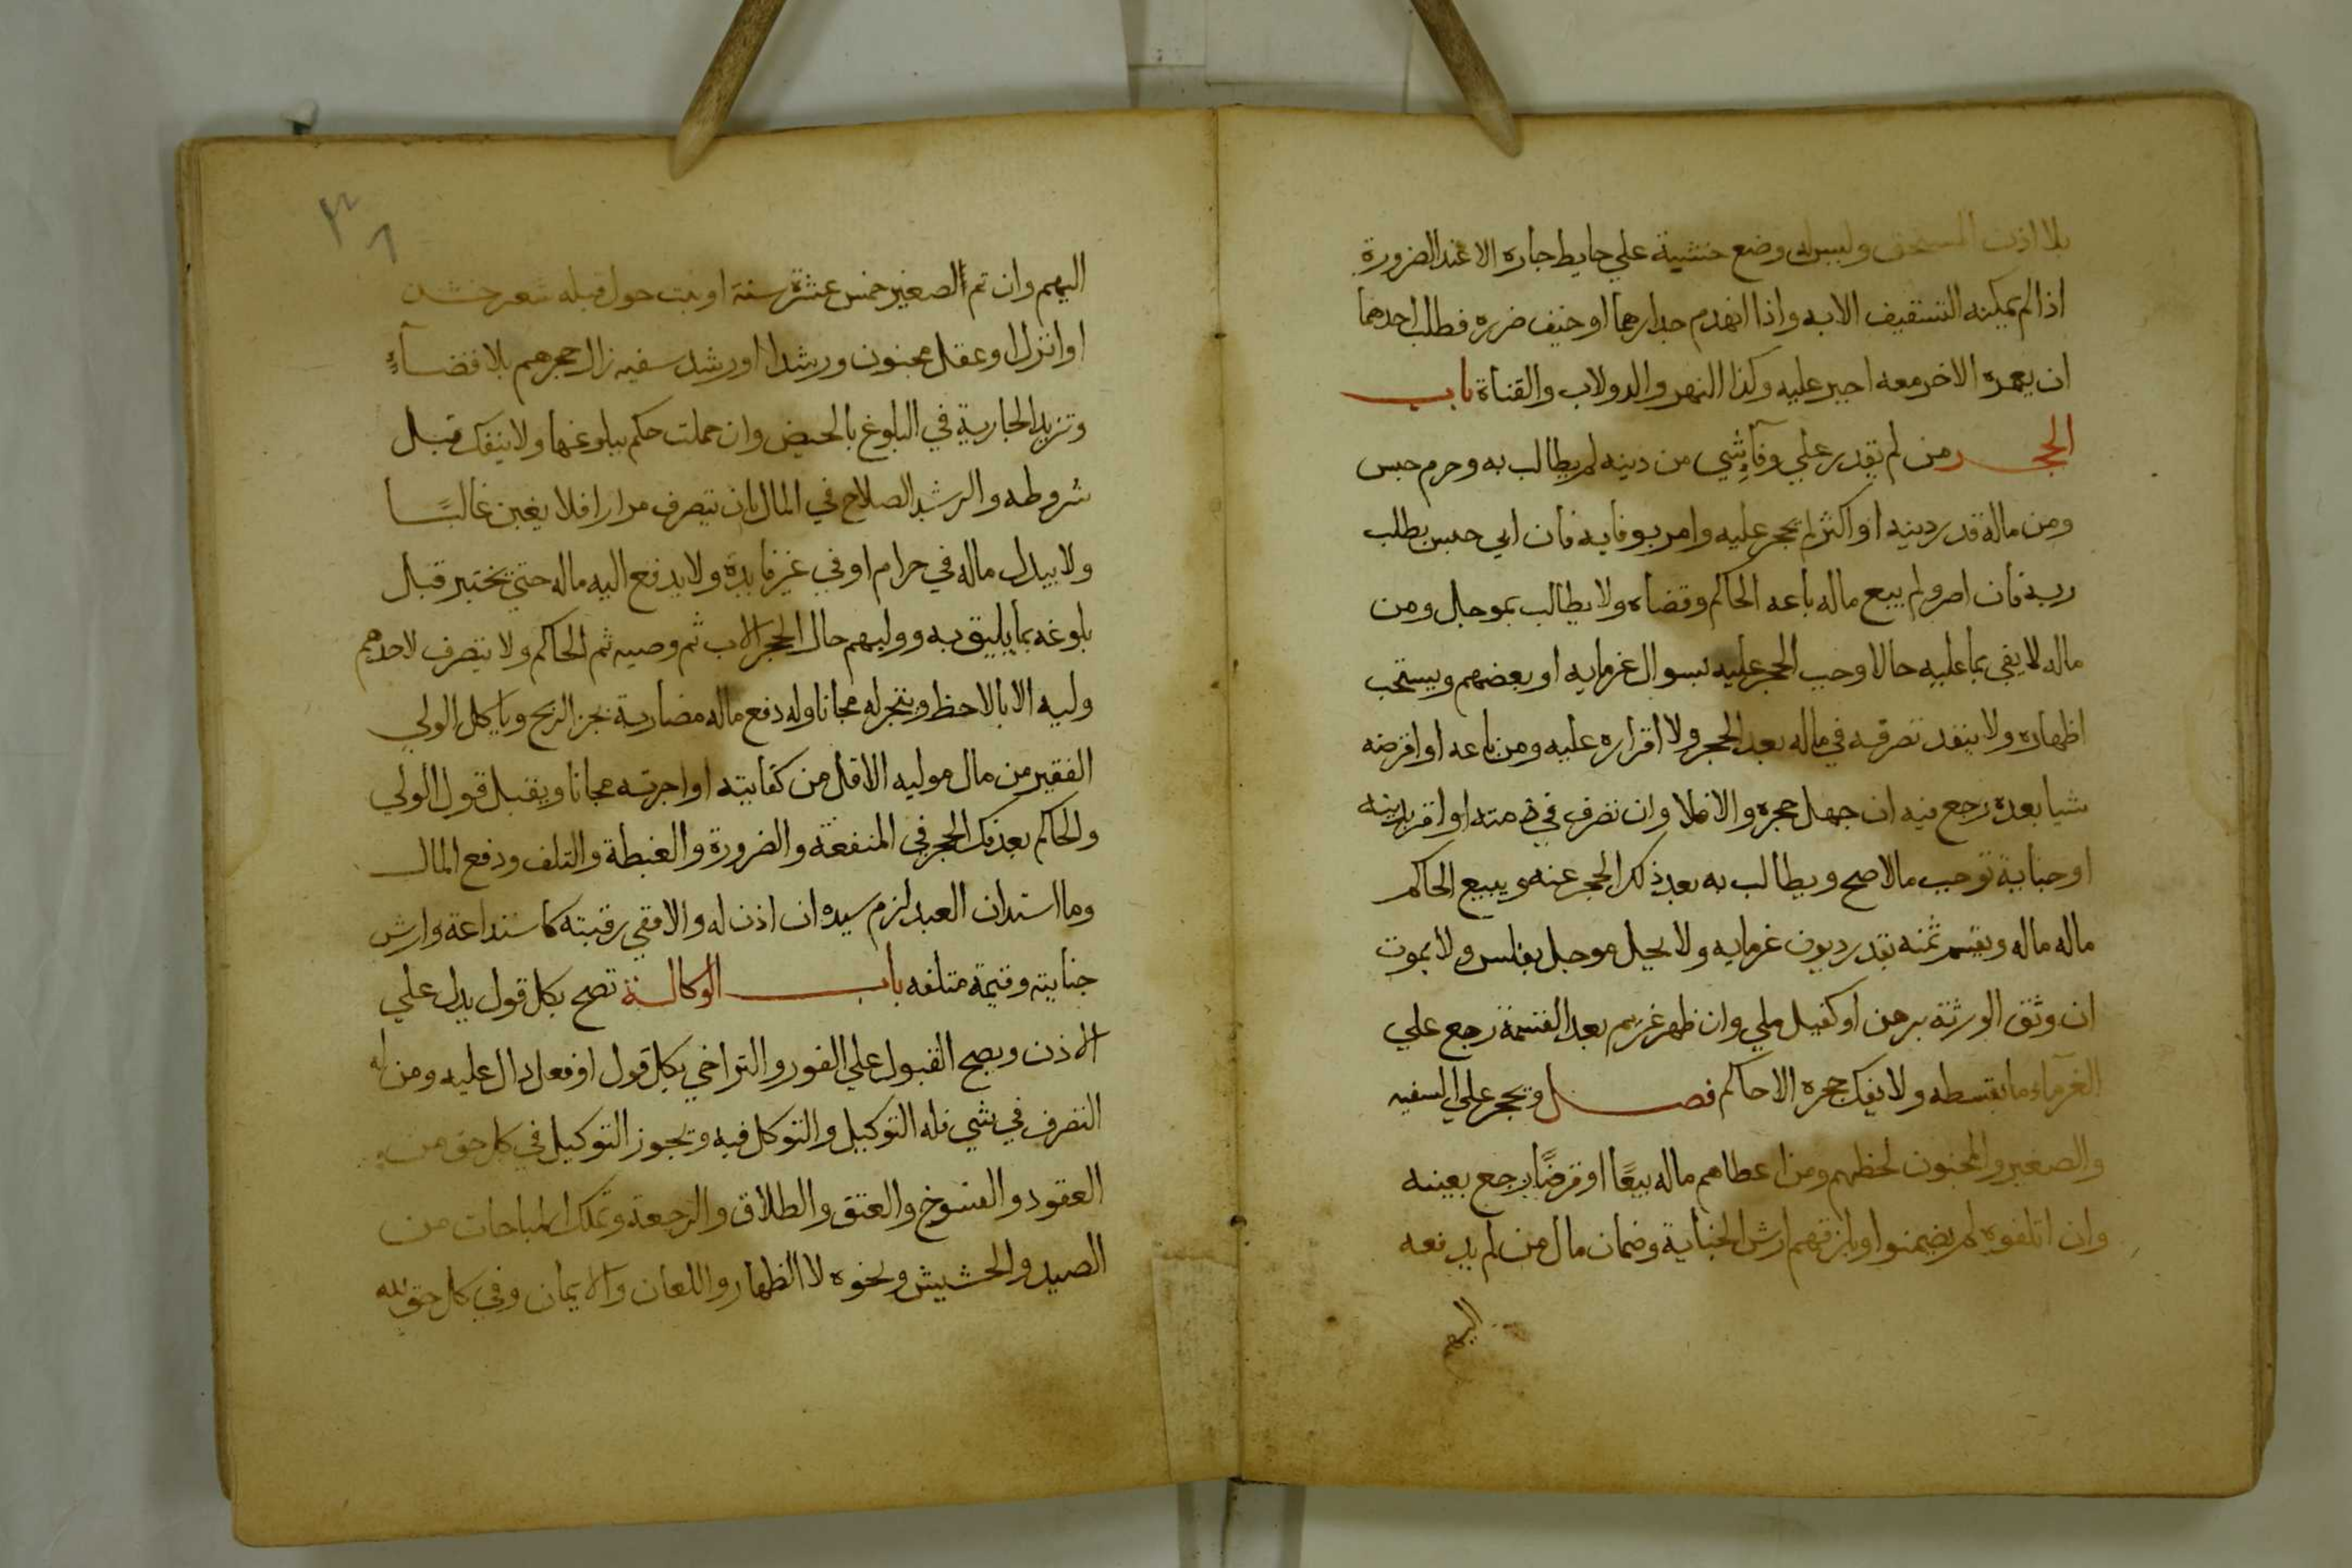 بلا اذن المستحق وليس له وضع خشبة علي حايط جاره الا عند الضرورة
اذا لم يمكنه التسقيف الا به واذا انهدم جدارهما او خيف ضرره فطلب احدهما
ان يعمره الاخر معه اجبر عليه وكذا النهر والدولاب والقناة باب
الحجر من لم يقدر علي وفآء شي من دينه لم يطالب به وحرم حبس
ومن ماله قدر دينه او اكثر لم يحجر عليه وامر بوفايه فان ابي حبس بطلب
ربه فان اصر ولم يبع ماله باعه الحاكم وقضاه ولا يطالب بموجل ومن
ماله لا يفي بما عليه حالا وجب الحجر عليه بسوال غرمايه او بعضهم ويستحب
اظهاره ولا ينفد تصرفه في ماله بعد الحجر ولا اقراره عليه ومن باعه او اقرضه
شيا بعده رجع فيه ان جهل حجره والا فلا وان تصرف في ذمته او اقر بدينه
او جناية توجب مالا صح ويطالب به بعد ذلك الحجر عنه ويبيع الحاكم
ماله ماله ويقسم ثمنه بقدر ديون غرمايه ولا يحيل موجل بفلس ولا بموت
ان وثق الورثة برهن او كفيل ملي وان ظهر غريم بعد القسمة رجع علي
الغرمآء ما بقسطه ولا يفك حجره الا حاكم فصل ويحجر علي السفيه
والصغير والمجنون لحظهم ومن اعطاهم ماله بيعًا او قرضًا رجع بعينه
وان اتلفوه لم يضمنوا ويلزمهم ارش الجناية وضمان مال من لم يدفعه
اليهم
اليهم وان تم الصغير خمس عشرة سنة او نبت حول قبله شعر خشن
او انزل او عقل مجنون ورشدا او رشد سفيه زال حجرهم بلا قضآء
وتزيد الجارية في البلوغ بالحيض وان حملت حكم ببلوغها ولا ينفك قبل
شروطه والرشد الصلاح في المال بان يتصرف مرارا فلا يغبن غالبًا
ولا يبدل ماله في حرام او في غير فايدة ولا يدفع اليه ماله حتي يختبر قبل
بلوغه بما يليق به ووليهم حال الحجر الاب ثم وصيه ثم الحاكم ولا يتصرف لاحدهم
وليه الا بالاحظ ويتجر له مجانا وله دفع ماله مضاربة بجز الربح وياكل الولي
الفقير من مال موليه الاقل من كفايته او اجرته مجانا ويقبل قول الولي
والحاكم بعد فك الحجر في المنفعة والضرورة والغبطة والتلف ودفع المال
وما استدان العبد لزم سيده ان اذن له والا ففي رقبته كاستداعة وارش
جنايته وقيمة متلفه باب الوكالة تصح بكل قول يدل علي
الاذن ويصح القبول علي الفور والتراخي بكل قول او فعل دال عليه ومن له
التصرف في شي فله التوكيل والتوكل فيه ويجوز التوكيل في كل حق من
العقود والفسوخ والعتق والطلاق والرجعة وتملك المباحات من
الصيد والحشيش ونحوه لا الظهار واللعان والايمان وفي كل حق لله